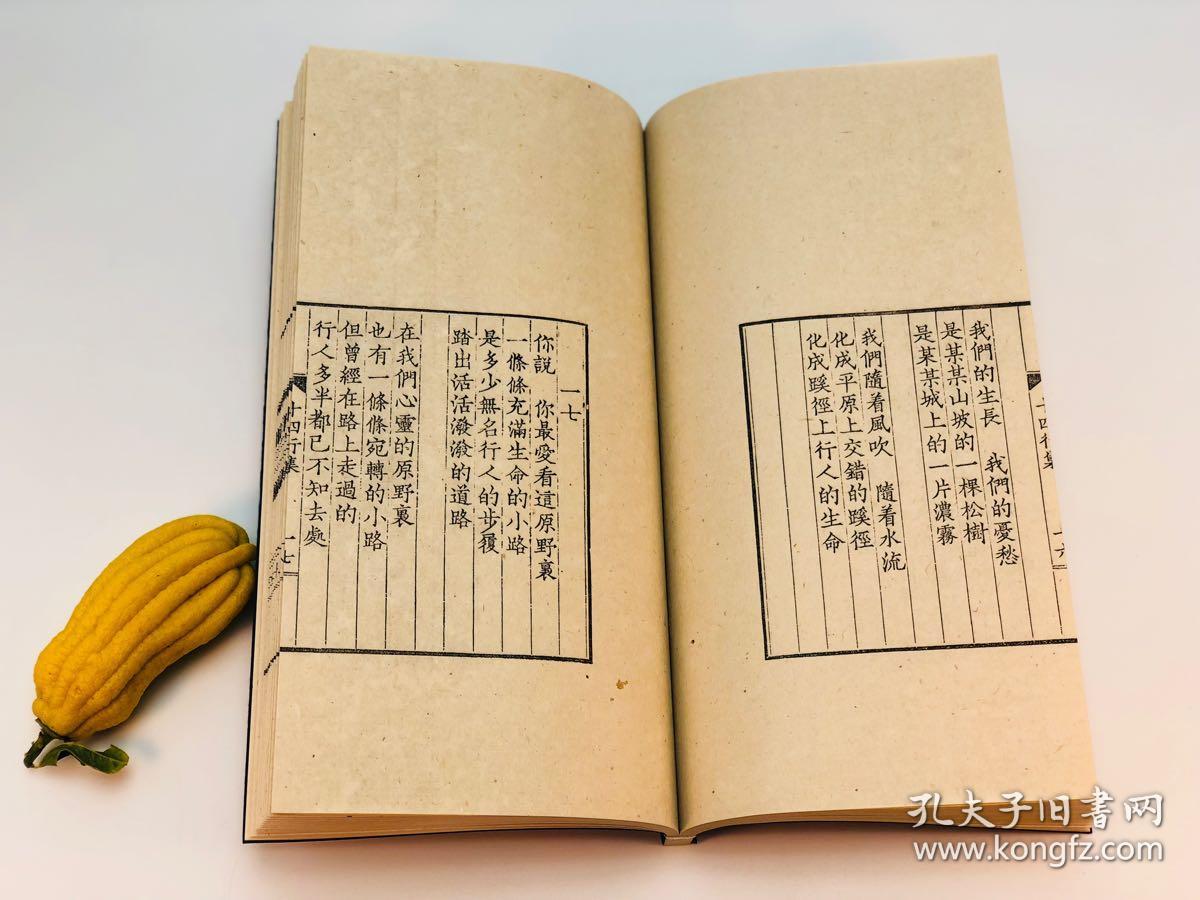 十四行集 一六
我們的生長 我們的憂愁
是某某山坡的一棵松樹
是某某城上的一片濃霧
我們隨着風吹 隨着水流
化成平原上交錯的蹊徑
化成蹊徑上行人的生命
一七
你說 你最愛看這原野裏
一條條充滿生命的小路
是多少無名行人的步履
踏出活活潑潑的道路
在我們心靈的原野裏
也有一條條宛轉的小路
但曾經在路上走過的
行人多半都已不知去處
十四行集 一七
孔夫子旧書网
www.kongfz.com